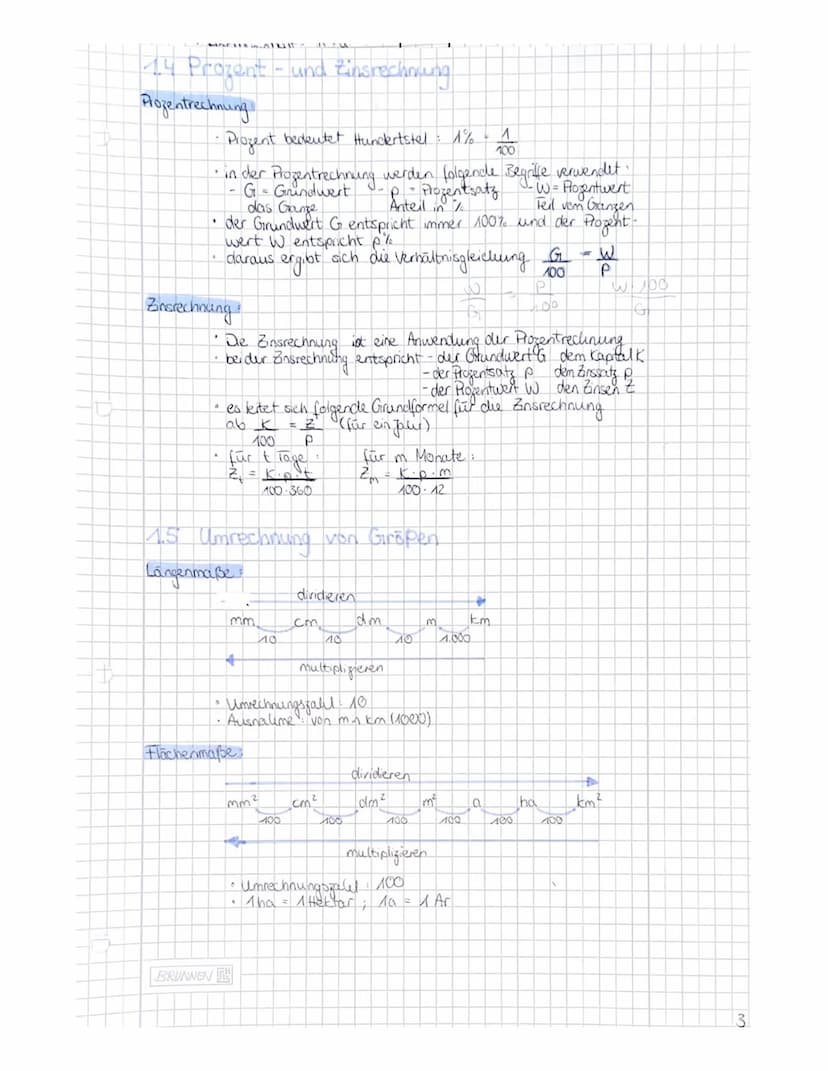 1.4 Prozent- und Zinsrechnung
Prozentrechnung
· Prozent bedeutet Hundertstel: 1% = 1/100
· in der Prozentrechnung werden folgende Begriffe verwendet:
- G = Grundwert - p = Prozentsatz - W = Prozentwert
das Ganze Anteil in % Teil vom Ganzen
· der Grundwert G entspricht immer 100% und der Prozent-
wert W entspricht p%
· daraus ergibt sich die Verhältnisgleichung G/100 = W/p
W/G = p/100 W·100/G
Zinsrechnung:
· Die Zinsrechnung ist eine Anwendung der Prozentrechnung
· bei der Zinsrechnung entspricht - der Grundwert G dem Kapital K
- der Prozentsatz p dem Zinssatz p
- der Prozentwert W den Zinsen Z
· es leitet sich folgende Grundformel für die Zinsrechnung
ab K/100 = Z/p (für ein Jahr)
· für t Tage: für m Monate:
Zt = K·p·t/100·360 Zm = K·p·m/100·12
1.5 Umrechnung von Größen
Längenmaße:
dividieren
mm cm dm m km
10 10 10 1.000
multiplizieren
· Umrechnungszahl: 10
· Ausnahme: von m km (1000)
Flächenmaße:
dividieren
mm² cm² dm² m² a ha km²
100 100 100 100 100 100
multiplizieren
· Umrechnungszahl: 100
· 1ha = 1 Hektar; 1a = 1 Ar
BRUNNEN
3